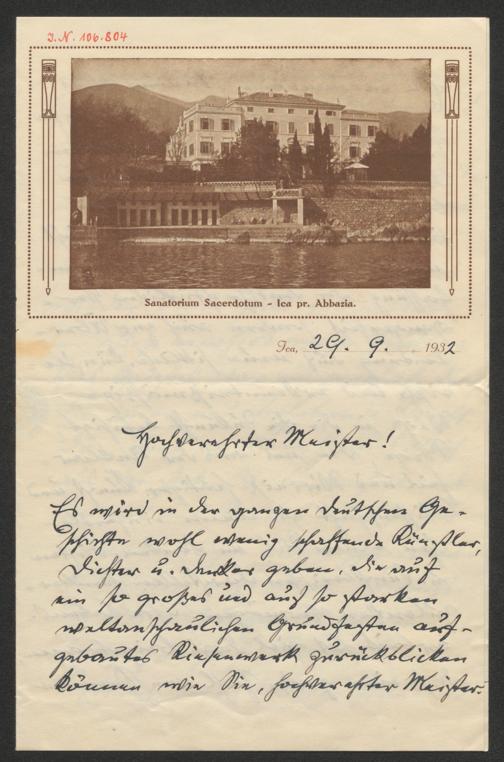 I.N. 106.804
Sanatorium Sacerdotum - Ica pr. Abbazia.
Ica, 29. 9. 1932
Hochverehrter Meister!
Es wird in der ganzen deutschen Ge-
schichte wohl wenig schaffende Künstler,
Dichter u. Denker geben, die auf
ein so großes und auf so starken
weltanschaulichen Grundfesten auf-
gebautes Riesenwerk zurückblicken
können wie Sie, hochverehrter Meister.